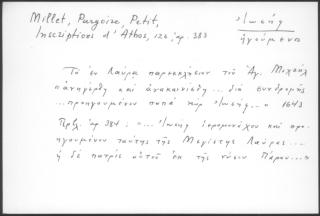 Millet, Pargoire, Petit, Ἰωσήφ
Inscriptions d'Athos, 122, ἀρ. 383 ἡγούμενο
Τὸ ἐν Λαύρᾳ παρεκκλήσιον τοῦ Ἁγ. Μιχαήλ
ἀνηγέρθη καὶ ἀνεκαινίσθη... διὰ συνδρομῆς
...προηγουμένου παπᾶ κὺρ Ἰωσήφ..." 1643
ἀρ. 384: "... Ἰωσὴφ ἱερομονάχου καὶ προ-
ηγουμένου ταύτης τῆς Μεγίστης Λαύρας...
ἡ δὲ πατρὶς αὐτοῦ ἐκ τῆς νήσου Πάρου..."